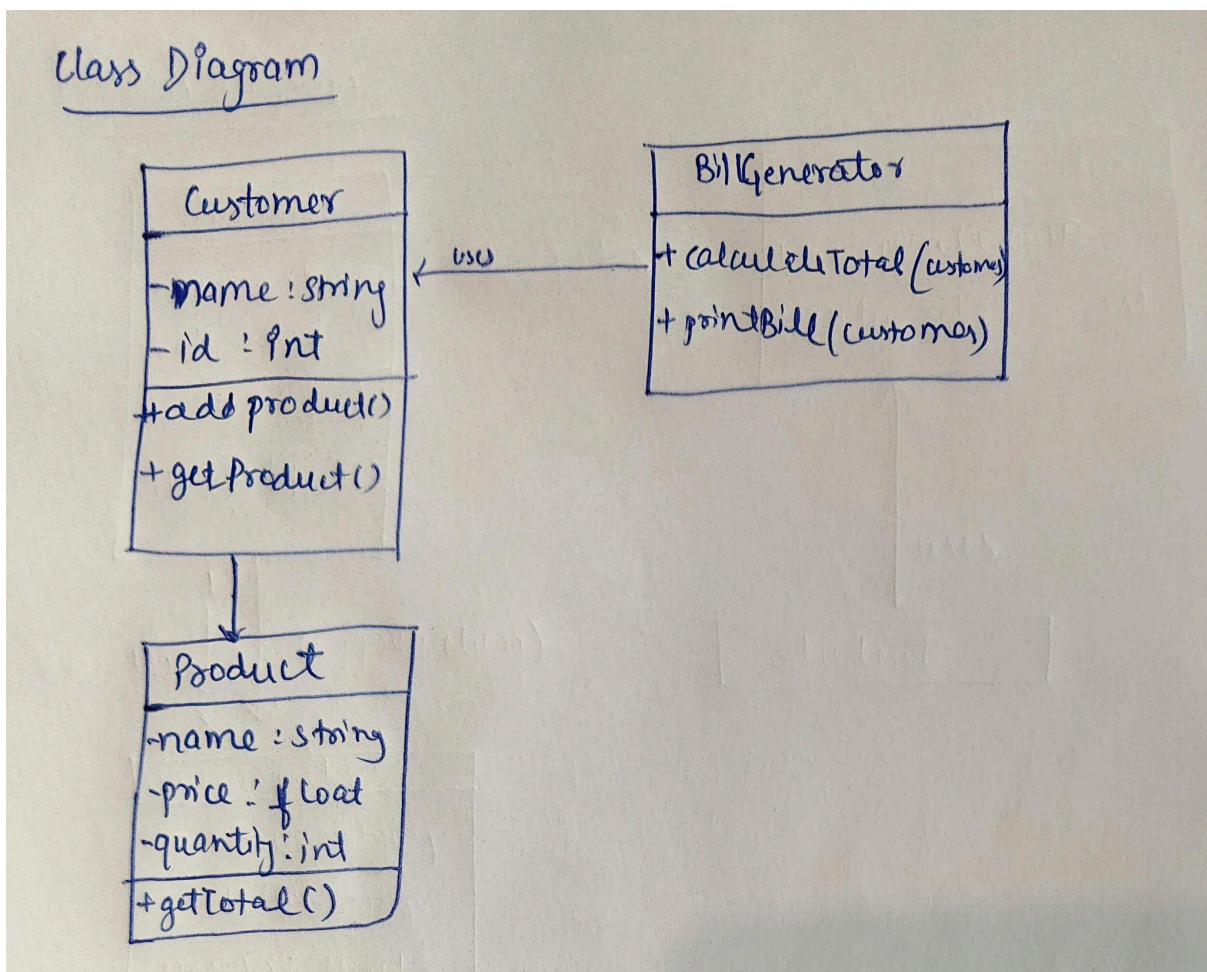 Class Diagram
Customer
-name : string
- id : int
+add product()
+ getProduct()
uses
BillGenerator
+ calculateTotal(customer)
+ printBill(customer)
Product
-name : string
-price : float
-quantity : int
+getTotal()